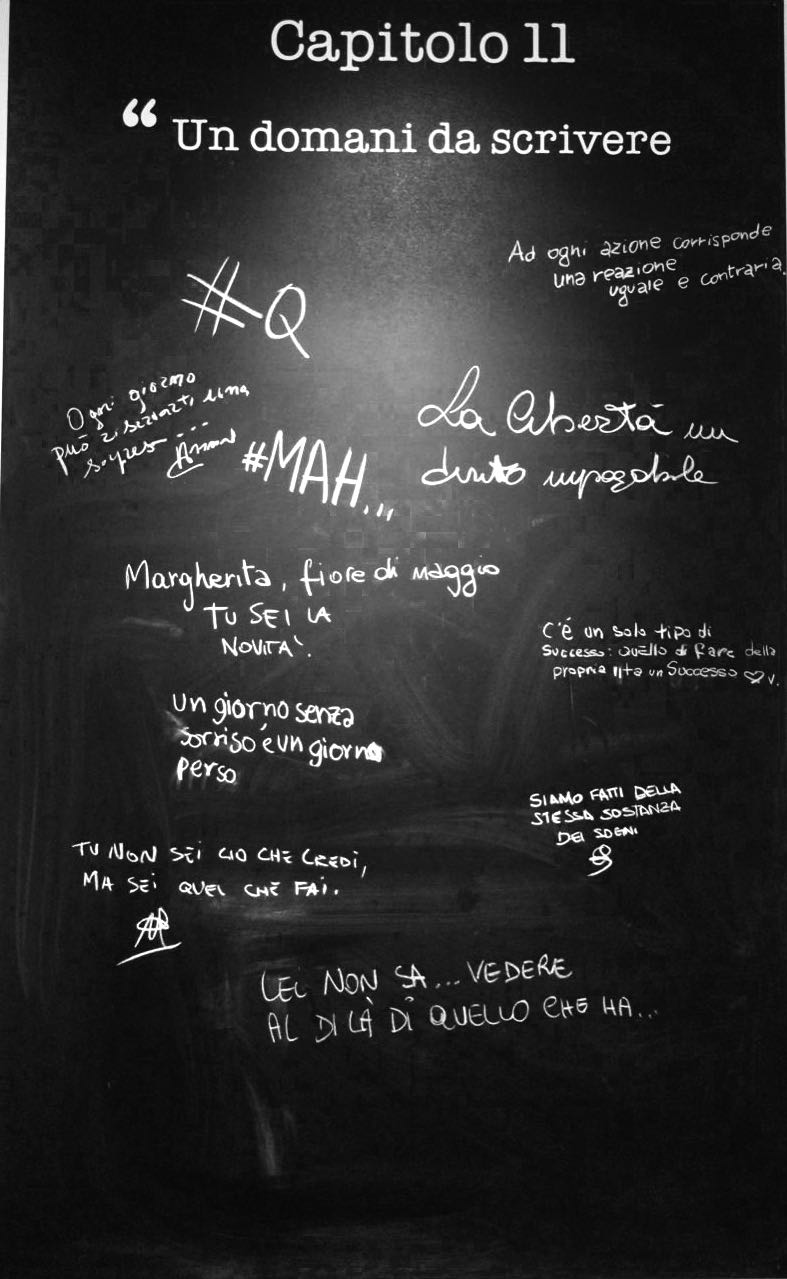 Capitolo 11
“ Un domani da scrivere
Ad ogni azione corrisponde
una reazione
uguale e contraria.
#Q
Ogni giorno
può
La libertà un
#MAH...
Margherita, fiore di maggio
TU SEI LA
NOVITA'.
C'é un solo tipo di
Successo: quello di fare della
propria vita un Successo ♡ v.
un giorno senza
sorriso é un giorno
perso
SIAMO FATTI DELLA
STESSA SOSTANZA
DEI SOGNI
TU NON SEI CIO CHE CREDI,
MA SEI QUEL CHE FAI.
LEI NON SA... VEDERE
AL DI LÀ DI QUELLO CHE HA...